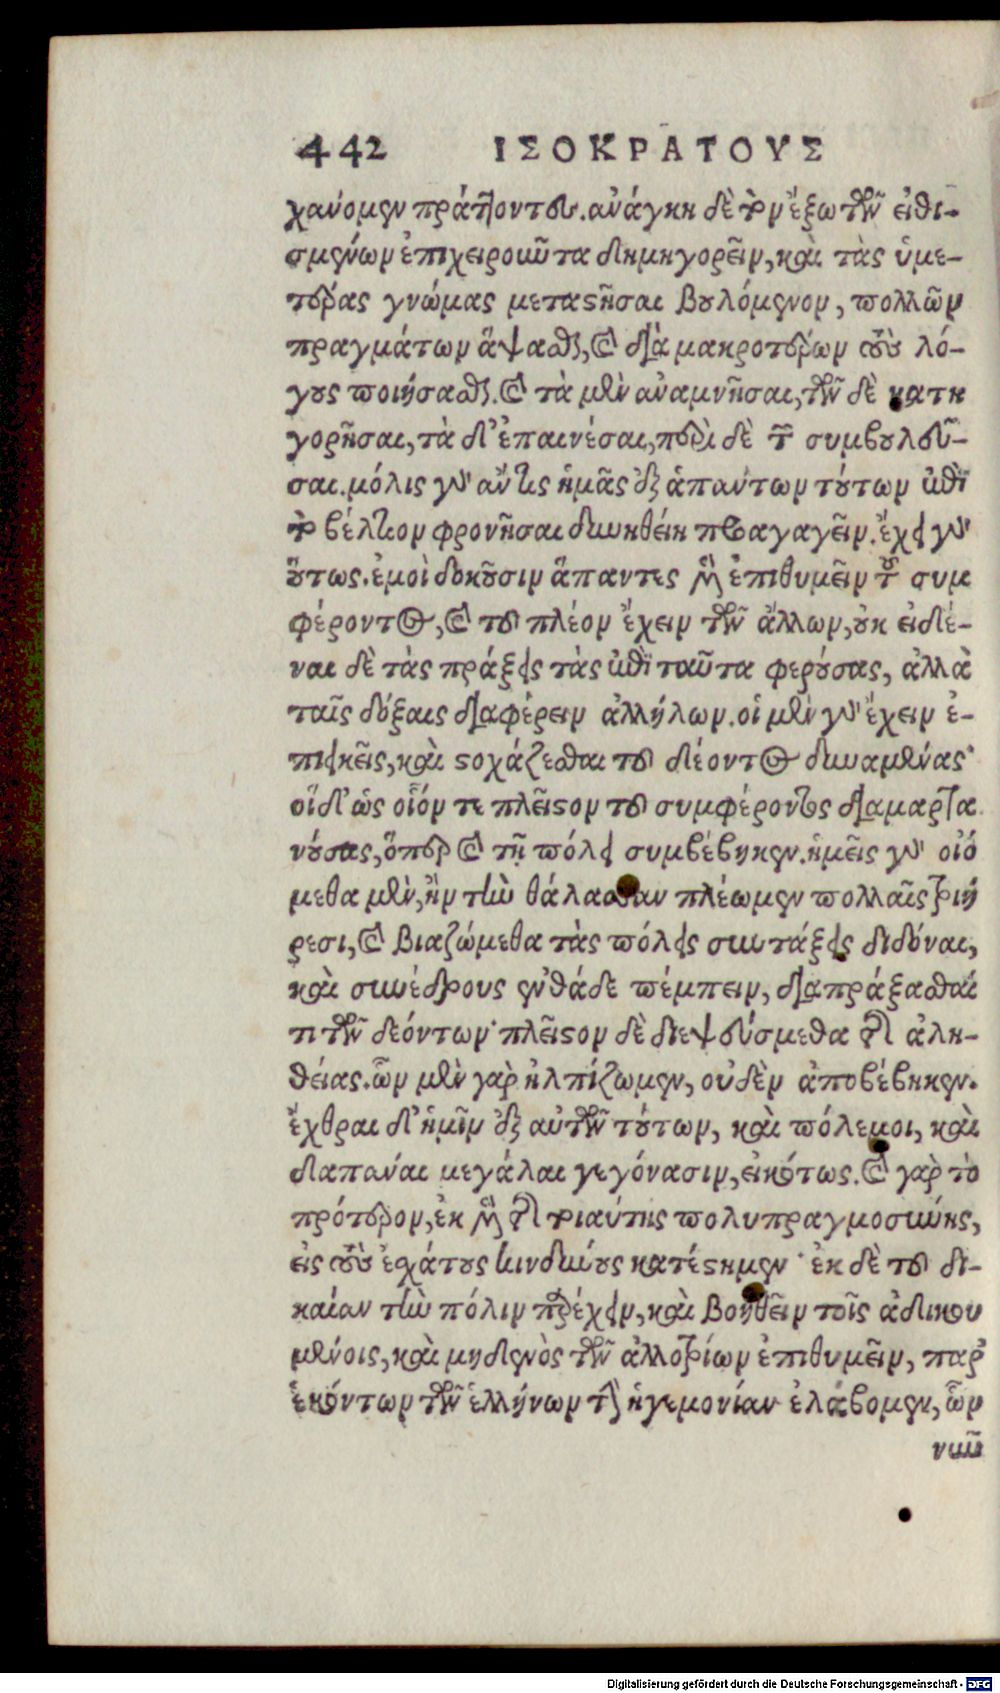 442 ΙΣΟΚΡΑΤΟΥΣ
χάνομεν πράττοντες. ἀνάγκη δὲ τὸν ἔξω τῶν εἰθι-
σμένων ἐπιχειροῦντα δημηγορεῖν, καὶ τὰς ὑμε-
τέρας γνώμας μεταστῆσαι βουλόμενον, πολλῶν
πραγμάτων ἅψασθαι, καὶ διὰ μακροτέρων τοὺς λό-
γους ποιήσασθαι. καὶ τὰ μὲν ἀναμνῆσαι, τῶν δὲ κατη
γορῆσαι, τὰ δ' ἐπαινέσαι, περὶ δὲ τῶν συμβουλεῦ-
σαι. μόλις γὰρ ἄν τις ἡμᾶς ἐξ ἁπάντων τούτων ἐπὶ
τὸ βέλτιον φρονῆσαι δυνηθείη προαγαγεῖν. ἔχει γὰρ
οὕτως. ἐμοὶ δοκοῦσιν ἅπαντες μὲν ἐπιθυμεῖν τοῦ συμ
φέροντος, καὶ τοῦ πλέον ἔχειν τῶν ἄλλων, οὐκ εἰδέ-
ναι δὲ τὰς πράξεις τὰς ἐπὶ ταῦτα φερούσας, ἀλλὰ
ταῖς δόξαις διαφέρειν ἀλλήλων. οἱ μὲν γὰρ ἔχειν ἐ-
πιεικεῖς, καὶ στοχάζεσθαι τοῦ δέοντος δυναμένας·
οἱ δ' ὡς οἷόν τε πλεῖστον τοῦ συμφέροντος διαμαρτα
νούσας, ὅπερ καὶ τῇ πόλει συμβέβηκεν. ἡμεῖς γὰρ οἰό
μεθα μὲν, ἢν τὴν θάλασσαν πλέωμεν πολλαῖς τριή
ρεσι, καὶ βιαζώμεθα τὰς πόλεις συντάξεις διδόναι,
καὶ συνέδρους ἐνθάδε πέμπειν, διαπράξασθαί
τι τῶν δεόντων· πλεῖστον δὲ διεψεύσμεθα τῆς ἀλη-
θείας. ὧν μὲν γὰρ ἠλπίζωμεν, οὐδὲν ἀποβέβηκεν.
ἔχθραι δ' ἡμῖν ἐξ αὐτῶν τούτων, καὶ πόλεμοι, καὶ
δαπάναι μεγάλαι γεγόνασιν, εἰκότως. καὶ γὰρ τὸ
πρότερον, ἐκ μὲν τῆς τοιαύτης πολυπραγμοσύνης,
εἰς τοὺς ἐσχάτους κινδύνους κατέστημεν· ἐκ δὲ τοῦ δι-
καίαν τὴν πόλιν παρέχειν, καὶ βοηθεῖν τοῖς ἀδικου
μένοις, καὶ μηδενὸς τῶν ἀλλοτρίων ἐπιθυμεῖν, παρ'
ἑκόντων τῶν ἑλλήνων τὴν ἡγεμονίαν ἐλάβομεν, ὧν
νῦν
Digitalisierung gefördert durch die Deutsche Forschungsgemeinschaft - DFG